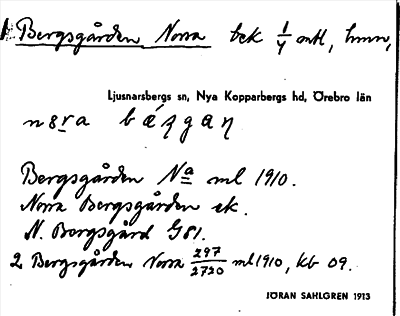 Bergsgården Norra bek 1/4 mtl, hmn,
Ljusnarsbergs sn, Nya Kopparbergs hd, Örebro län
Bergsgården Nª ml 1910.
Norra Bergsgården ek.
N. Borgsgård G81.
2 Bergsgården Norra 297/2720 ml 1910, kb 09.
JÖRAN SAHLGREN 1913